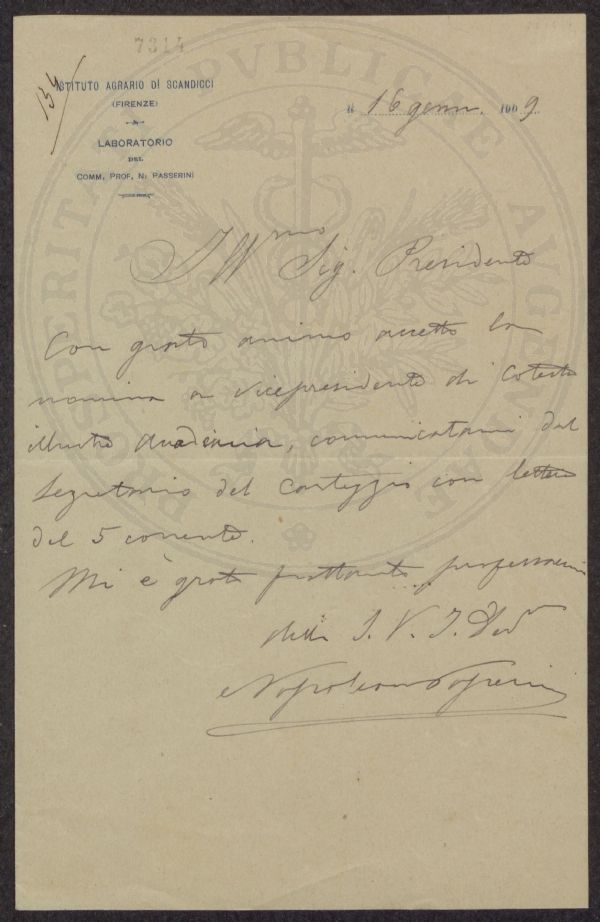 7314
134
ISTITUTO AGRARIO DI SCANDICCI
(FIRENZE)
LABORATORIO
DEL
COMM. PROF. N. PASSERINI
li 16 genn. 1909
PROSPERITATI PVBLICAE AVGENDAE
Ill.mo Sig. Presidente
Con grato animo accetto la
nomina a vicepresidente di Cotesta
illustre Accademia, comunicatami dal
Segretario del Carteggio con lettera
del 5 corrente.
Mi è grato frattanto professarmi
della S. V. I. Dev.
Napoleone Passerini